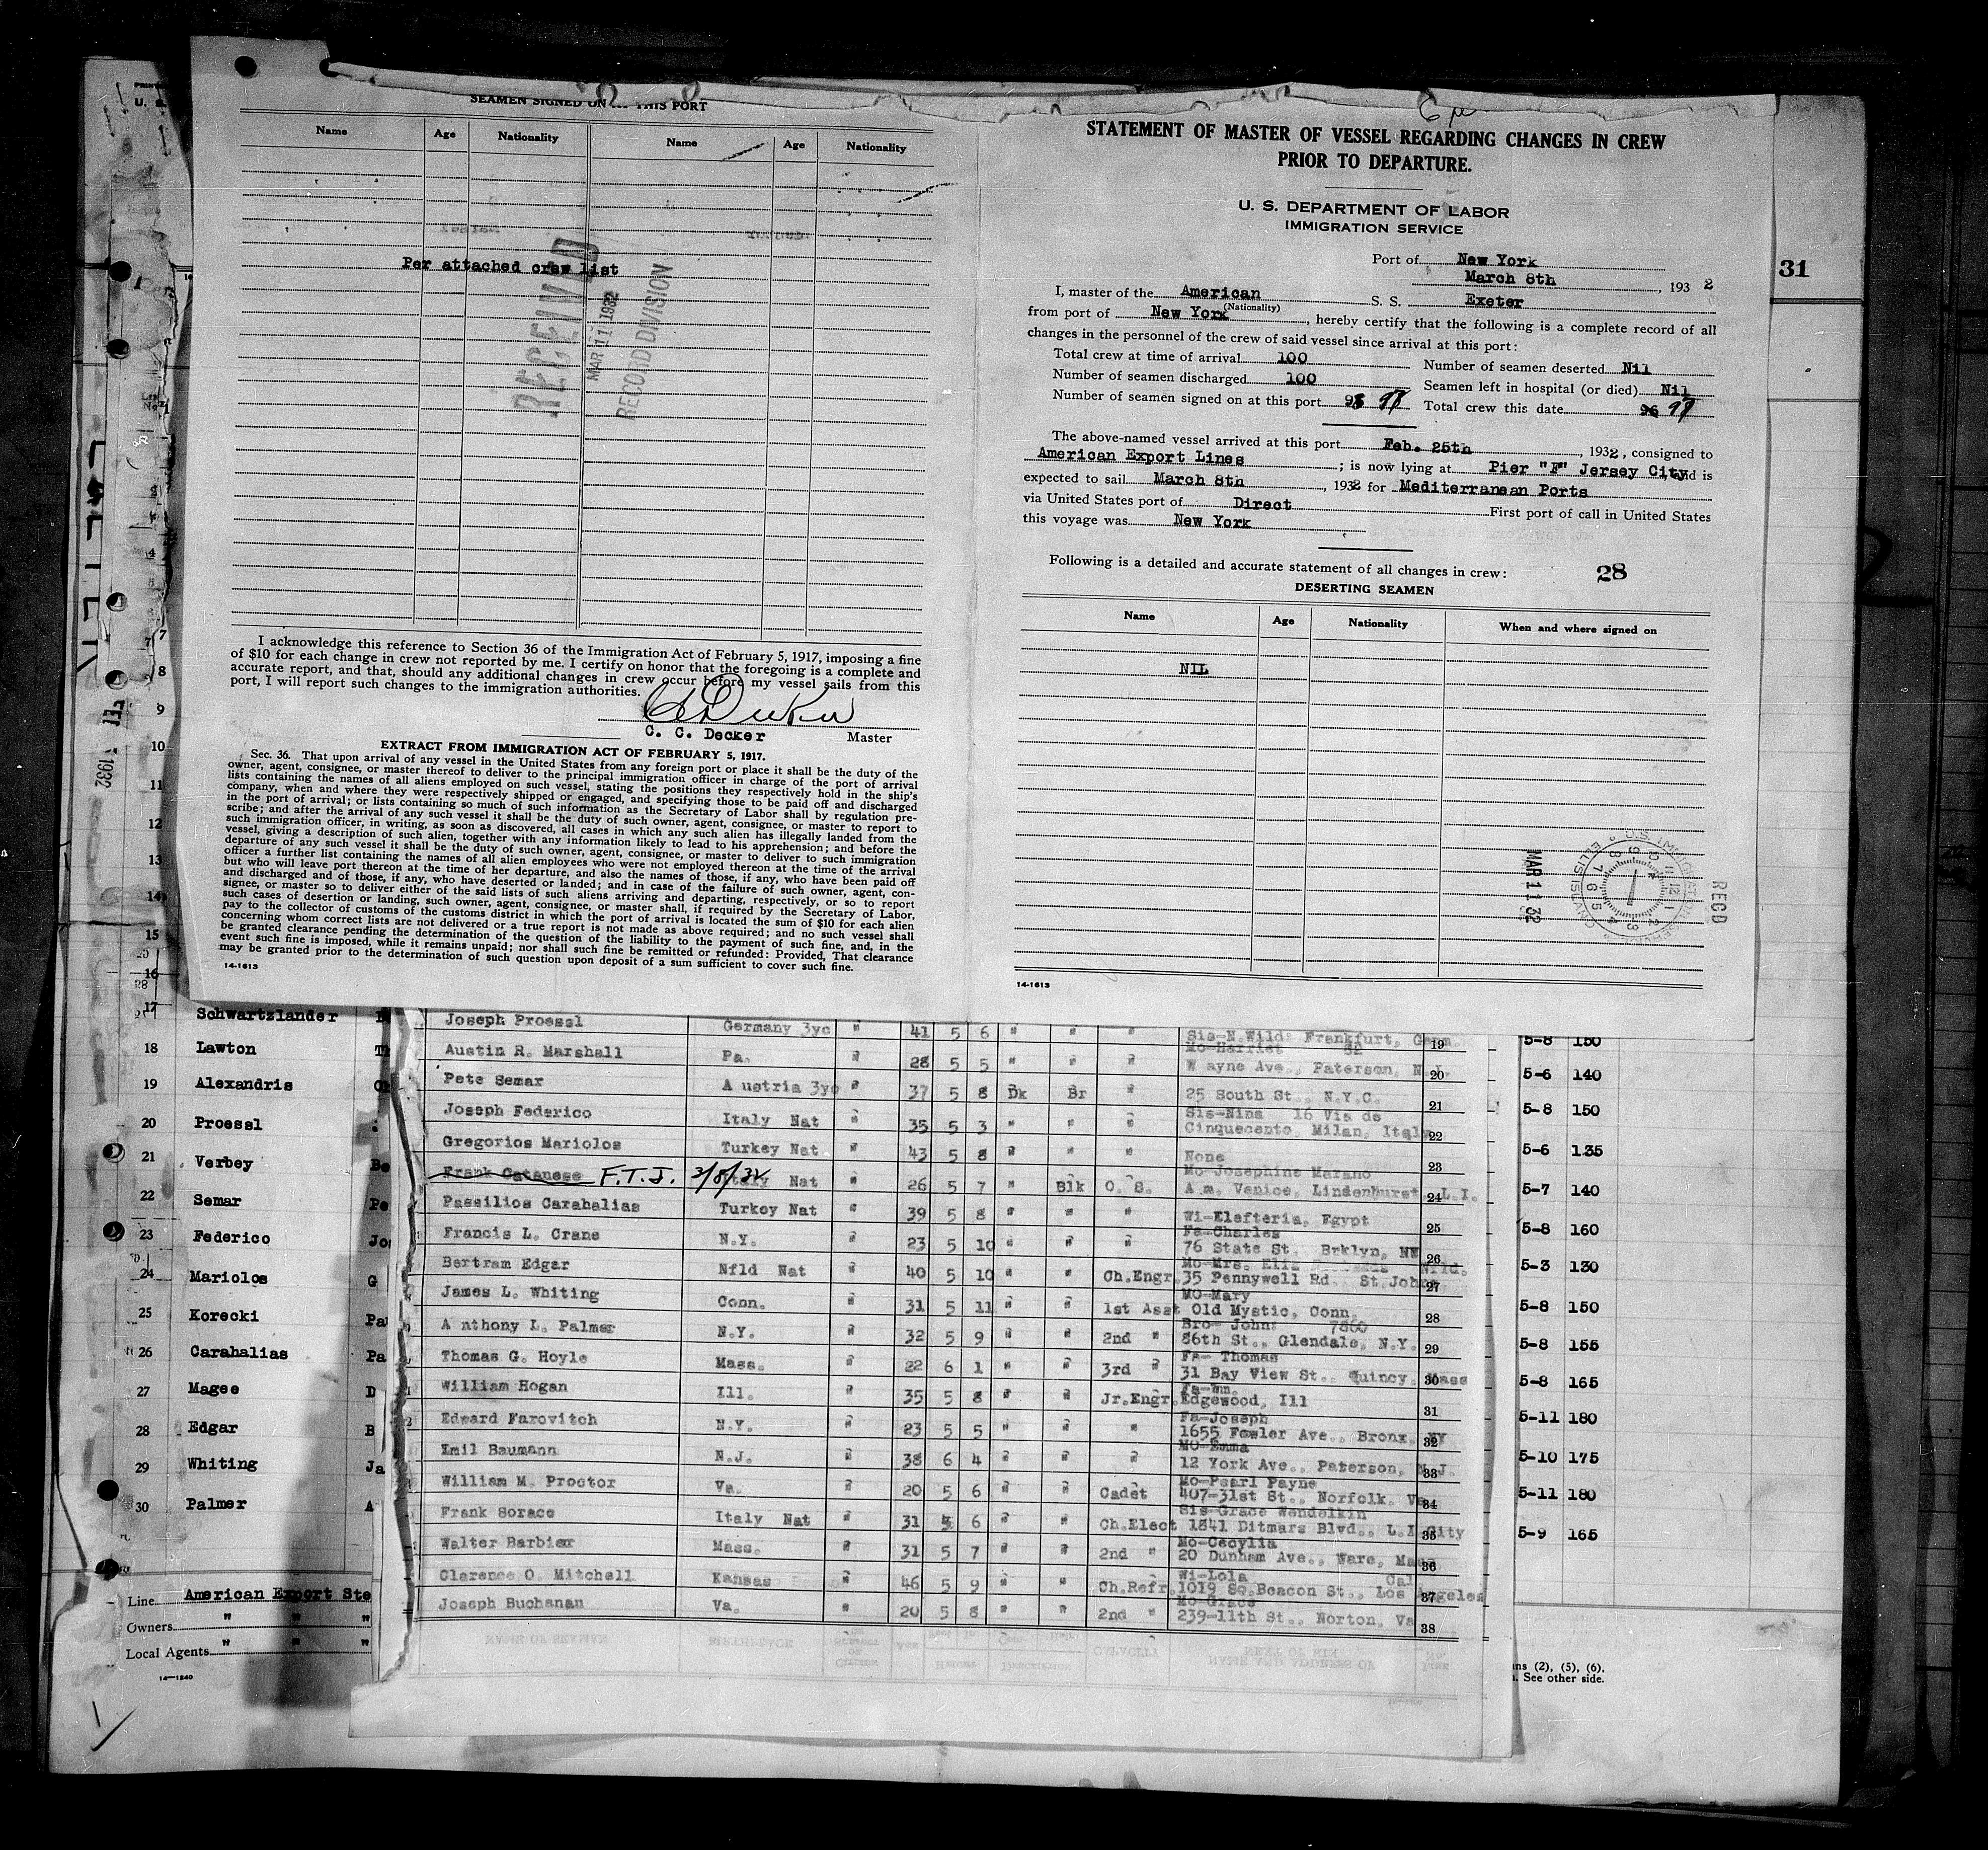 SEAMEN SIGNED ON THIS PORT
Name Age Nationality Name Age Nationality
Per attached crew list
RECEIVED
MAR 11 1932
RECORD DIVISION
I acknowledge this reference to Section 36 of the Immigration Act of February 5, 1917, imposing a fine
of $10 for each change in crew not reported by me. I certify on honor that the foregoing is a complete and
accurate report, and that, should any additional changes in crew occur before my vessel sails from this
port, I will report such changes to the immigration authorities.
C. C. Decker Master
EXTRACT FROM IMMIGRATION ACT OF FEBRUARY 5, 1917.
Sec. 36. That upon arrival of any vessel in the United States from any foreign port or place it shall be the duty of the
owner, agent, consignee, or master thereof to deliver to the principal immigration officer in charge of the port of arrival
lists containing the names of all aliens employed on such vessel, stating the positions they respectively hold in the ship's
company, when and where they were respectively shipped or engaged, and specifying those to be paid off and discharged
in the port of arrival; or lists containing so much of such information as the Secretary of Labor shall by regulation pre-
scribe; and after the arrival of any such vessel it shall be the duty of such owner, agent, consignee, or master to report to
such immigration officer, in writing, as soon as discovered, all cases in which any such alien has illegally landed from the
vessel, giving a description of such alien, together with any information likely to lead to his apprehension; and before the
departure of any such vessel it shall be the duty of such owner, agent, consignee, or master to deliver to such immigration
officer a further list containing the names of all alien employees who were not employed thereon at the time of the arrival
but who will leave port thereon at the time of her departure, and also the names of those, if any, who have been paid off
and discharged and of those, if any, who have deserted or landed; and in case of the failure of such owner, agent, con-
signee, or master so to deliver either of the said lists of such aliens arriving and departing, respectively, or so to report
such cases of desertion or landing, such owner, agent, consignee, or master shall, if required by the Secretary of Labor,
pay to the collector of customs of the customs district in which the port of arrival is located the sum of $10 for each alien
concerning whom correct lists are not delivered or a true report is not made as above required; and no such vessel shall
be granted clearance pending the determination of the question of the liability to the payment of such fine, and, in the
event such fine is imposed, while it remains unpaid; nor shall such fine be remitted or refunded: Provided, That clearance
may be granted prior to the determination of such question upon deposit of a sum sufficient to cover such fine.
14-1613
STATEMENT OF MASTER OF VESSEL REGARDING CHANGES IN CREW
PRIOR TO DEPARTURE.
U. S. DEPARTMENT OF LABOR
IMMIGRATION SERVICE
Port of New York
March 8th, 1932
I, master of the American S. S. Exeter
(Nationality)
from port of New York, hereby certify that the following is a complete record of all
changes in the personnel of the crew of said vessel since arrival at this port:
Total crew at time of arrival 100 Number of seamen deserted Nil
Number of seamen discharged 100 Seamen left in hospital (or died) Nil
Number of seamen signed on at this port 97 Total crew this date 96 97
The above-named vessel arrived at this port Feb. 25th, 1932, consigned to
American Export Lines; is now lying at Pier "F" Jersey City, and is
expected to sail March 8th, 1932 for Mediterranean Ports
via United States port of Direct First port of call in United States
this voyage was New York
Following is a detailed and accurate statement of all changes in crew: 28
DESERTING SEAMEN
Name Age Nationality When and where signed on
NIL
MAR 11 32
U.S. IMMIGRATION SERVICE
ELLIS ISLAND
RECD
14-1613
31
1932
7
8
9
10
11
12
13
14
15
16
17 Schwartzlander
18 Lawton
19 Alexandris
20 Proessl
21 Verbey
22 Semar
23 Federico
24 Mariolos
25 Korecki
26 Carahalias
27 Magee
28 Edgar
29 Whiting
30 Palmer
Line American Export Ste
Owners " " "
Local Agents " " "
14-1240
Joseph Proessl Germany 3yc " 41 5 6 " " " Sis-N.Wild: Frankfurt, Germ. 19
Austin R. Marshall Pa. " 28 5 5 " " " Mo-Harriet 32 Wayne Ave., Paterson, N.J. 20
Pete Semar Austria 3yc " 37 5 8 Dk Br " 25 South St., N.Y.C. 21
Joseph Federico Italy Nat " 35 5 3 " " " Sis-Nina 16 Via de Cinquecento, Milan, Italy 22
Gregorios Mariolos Turkey Nat " 43 5 8 " " " None 23
Frank Catanese F.T.J. 3/8/32 Italy Nat " 26 5 7 " Blk O. S. Mo-Josephine Marano Am. Venice, Lindenhurst, L.I. 24
Passilios Carahalias Turkey Nat " 39 5 8 " " " Wi-Elefteria, Egypt 25
Francis L. Crane N.Y. " 23 5 10 " " " Fa-Charles 76 State St. Brklyn, NY 26
Bertram Edgar Nfld Nat " 40 5 10 " " Ch.Engr. Mo-Mrs. 35 Pennywell Rd. St.Johns Nfld. 27
James L. Whiting Conn. " 31 5 11 " " 1st Asst Mo-Mary Old Mystic, Conn. 28
Anthony L. Palmer N.Y. " 32 5 9 " " 2nd " Bro- John: 7860 86th St., Glendale, N.Y. 29
Thomas G. Hoyle Mass. " 22 6 1 " " 3rd " Fa- Thomas 31 Bay View St., Quincy, Mass 30
William Hogan Ill. " 35 5 8 " " Jr.Engr. Fa-Wm. Edgewood, Ill 31
Edward Farovitch N.Y. " 23 5 5 " " " Fa-Joseph 1655 Fowler Ave., Bronx, NY 32
Emil Baumann N.J. " 38 6 4 " " " Mo-Emma 12 York Ave., Paterson, N.J. 33
William M. Proctor Va. " 20 5 6 " " Cadet Mo-Pearl Payne 407-31st St., Norfolk, Va 34
Frank Sorace Italy Nat " 31 5 6 " " Ch.Elect Sis-Grace Wendelkin 1841 Ditmars Blvd., L.I.City 35
Walter Barbier Mass. " 31 5 7 " " 2nd " Mo-Cecylia 20 Dunham Ave., Ware, Mass 36
Clarence O. Mitchell Kansas " 46 5 9 " " Ch.Refr. Wi-Lola 1019 So.Beacon St., Los Angeles Cal 37
Joseph Buchanan Va. " 20 5 8 " " 2nd " Mo-Grace 239-11th St., Norton, Va 38
5-8 150
5-6 140
5-8 150
5-6 135
5-7 140
5-8 160
5-3 130
5-8 150
5-8 155
5-8 165
5-11 180
5-10 175
5-11 180
5-9 165
ns (2), (5), (6).
See other side.